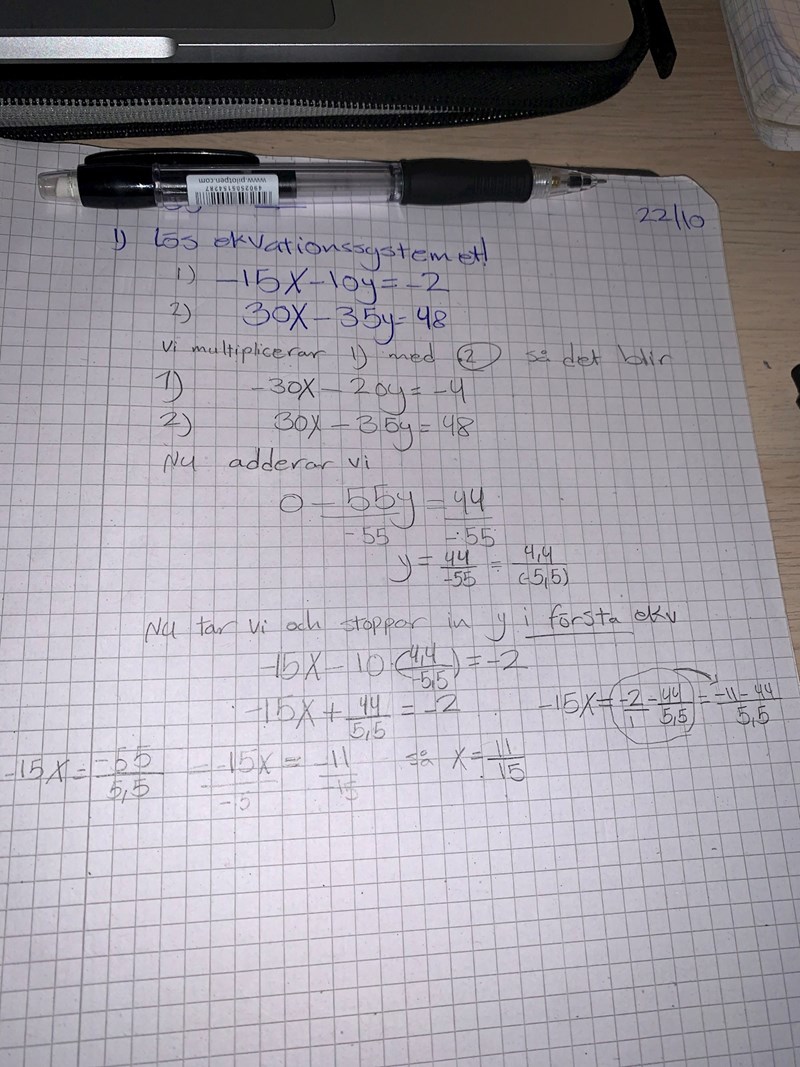 www.pilotpen.com
4902505154287
22/10
1) Lös ekvationssystemet!
1) -15x-10y=-2
2) 30x-35y=48
Vi multiplicerar 1) med 2 så det blir
1) -30x-20y=-4
2) 30x-35y=48
Nu adderar vi
0-55y/-55=44/-55
y=44/-55=4,4/(-5,5)
Nu tar vi och stoppar in y i första ekv
-15x-10·(4,4/-5,5)=-2
-15x+44/5,5=-2 -15x=-2/1-44/5,5=-11-44/5,5
-15x=-55/5,5 = -15x/-15=-11/-15 så x=11/15